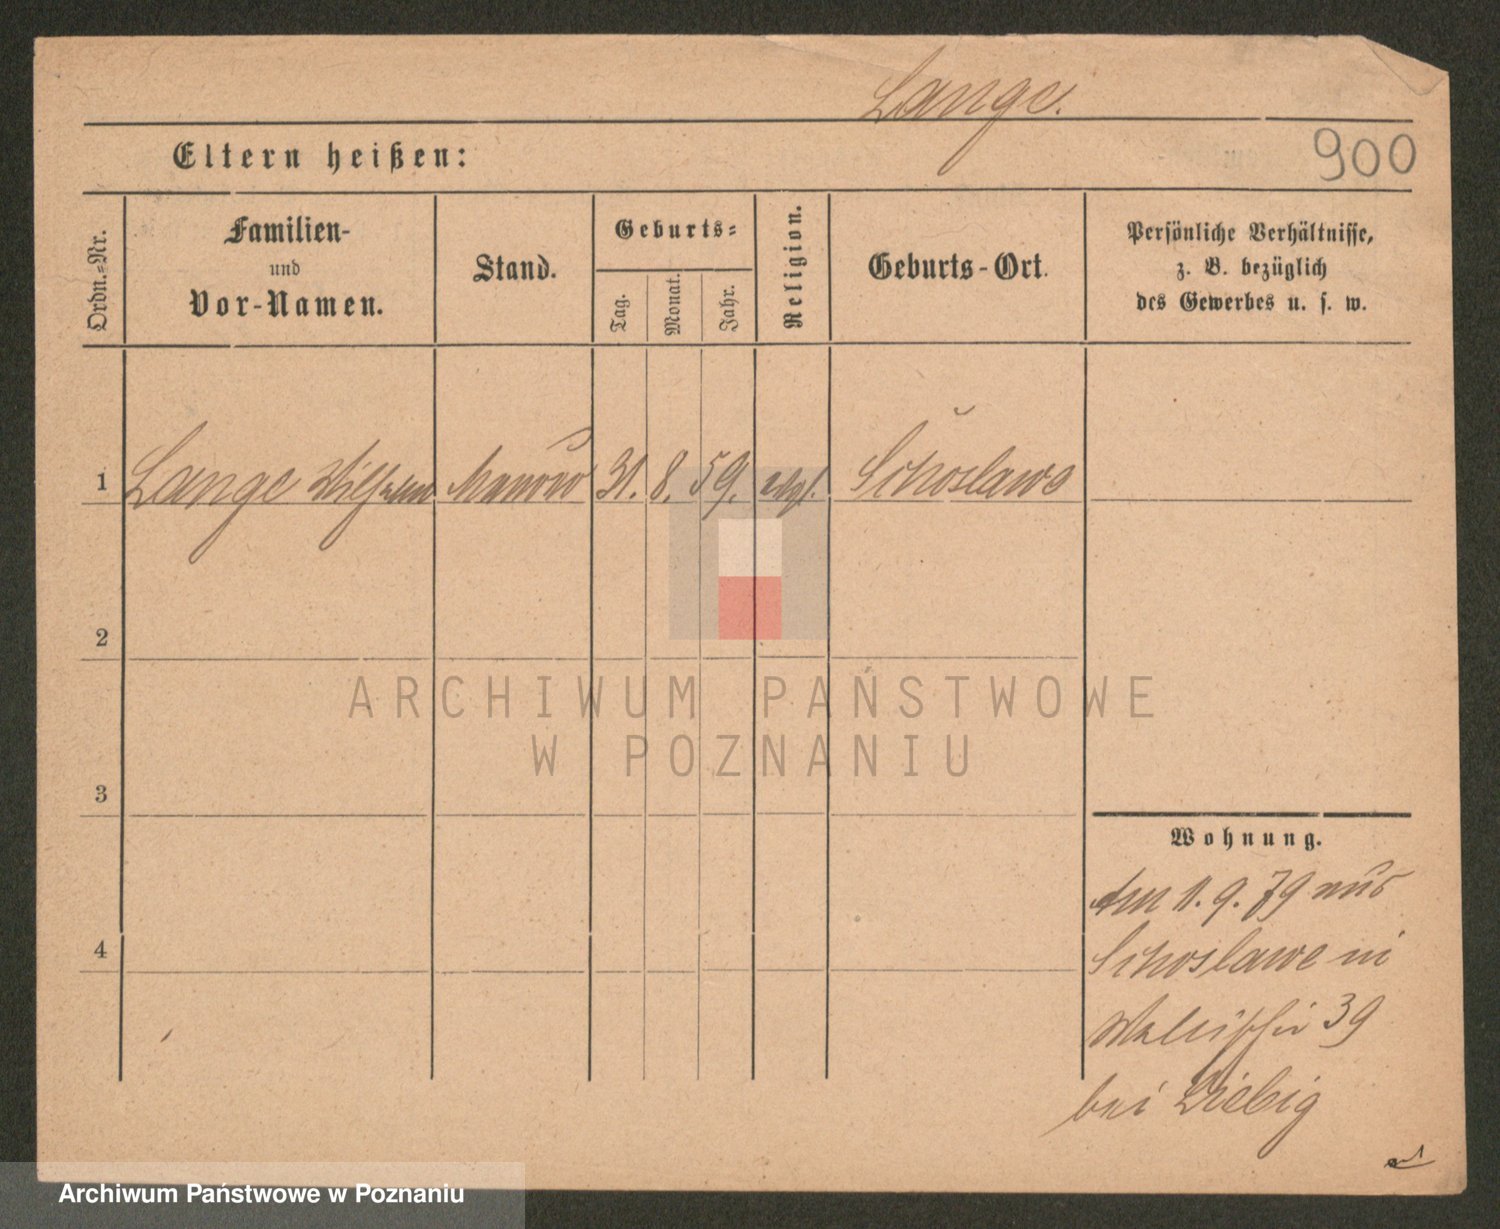 Lange.
Eltern heißen:
900
Ordn.-Nr.
Familien-
und
Vor-Namen.
Stand.
Geburts-
Tag.
Monat.
Jahr.
Religion.
Geburts-Ort.
Persönliche Verhältnisse,
z. B. bezüglich
des Gewerbes u. s. w.
1 Lange Wilhelm Maurer 31. 8. 59. evgl. Schoslawe
2
3
4
ARCHIWUM PAŃSTWOWE
W POZNANIU
Wohnung.
11. 9. 79 aus
Schoslawe in
Wallischei 39
bei Liebig
Archiwum Państwowe w Poznaniu